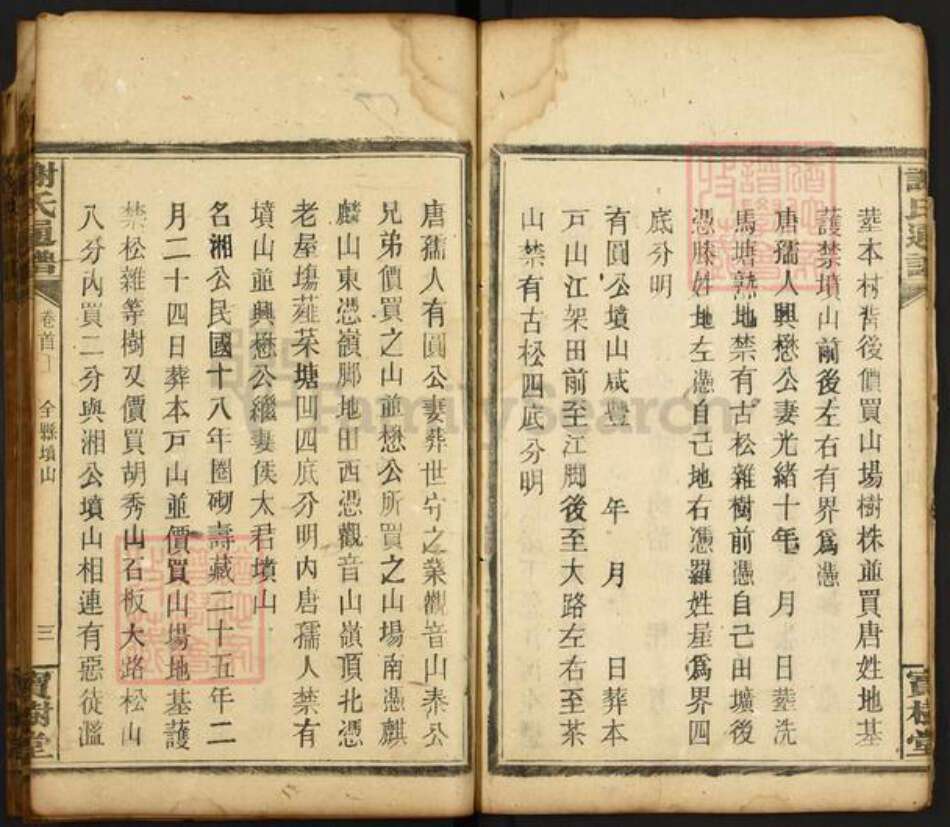 葬本村背後價買山塲樹株並買唐姓地基
護禁墳山前後左右有界爲憑
唐孺人興懋公妻光緒十年　月　日葬洗
馬塘熟地禁有古松雜樹前憑自己田壙後
憑滕姓地左憑自己地右憑羅姓星爲界四
底分明
有圓公墳山咸豐　年　月　日葬本
戸山江架田前至江脚後至大路左右至茶
山禁有古松四底分明
謝氏通譜
寳樹堂
唐孺人有圓公妻葬世守之業觀音山泰公
兄弟價買之山並懋公所買之山塲南憑麒
麟山東憑嶺脚地田西憑觀音山嶺頂北憑
老屋塲蕹菜塘凹四底分明内唐孺人禁有
墳山並興懋公繼妻侯太君墳山
名湘公民國十八年圈砌壽藏二十五年二
月二十四日葬本戸山並價買山塲地基護
禁松雜等樹又價買胡秀山石板大路松山
八分內買二分與湘公墳山相連有惡徒濫
謝氏通譜
卷首
全縣墳山
三
寳樹堂
FamilySearch